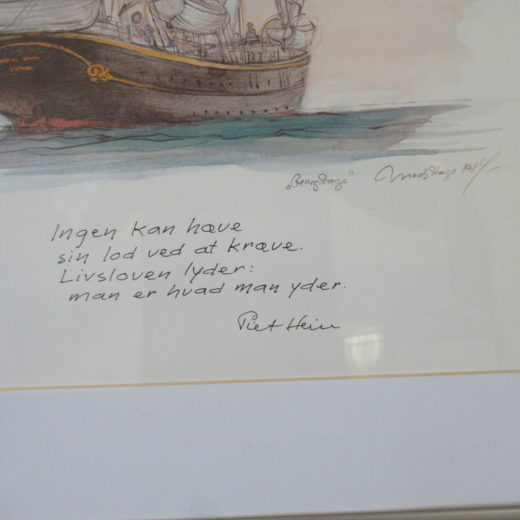 Ingen kan hæve
sin lod ved at kræve.
Livsloven lyder:
man er hvad man yder.
Piet Hein